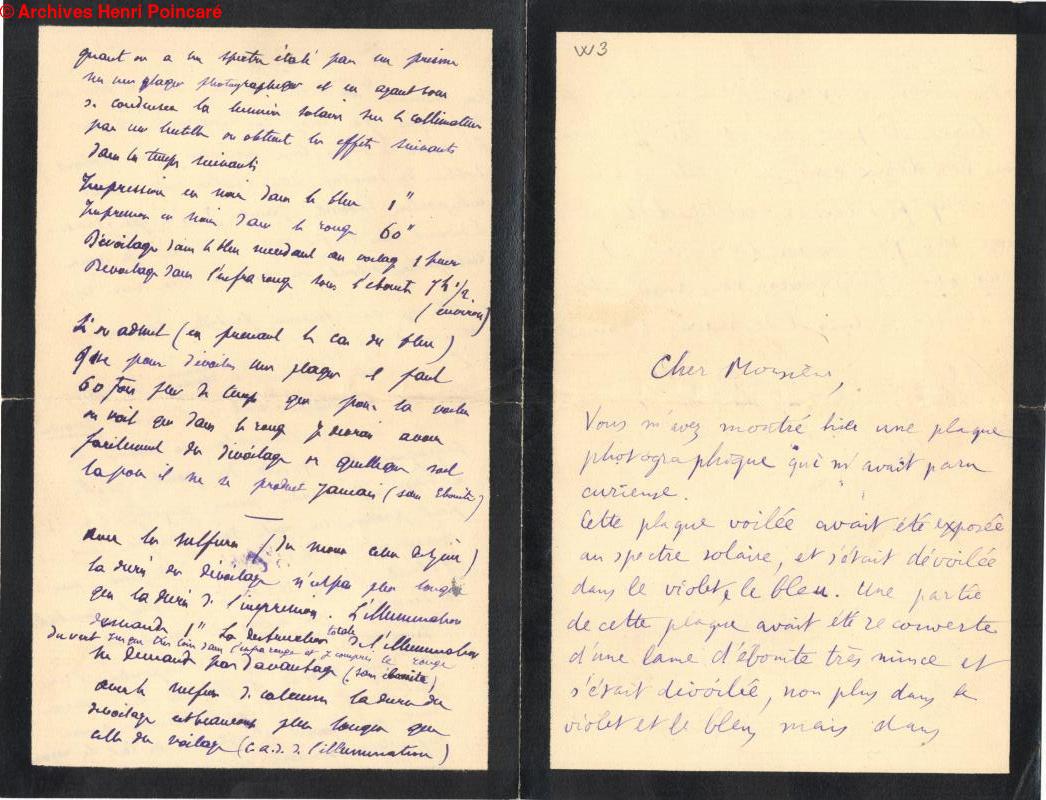 © Archives Henri Poincaré
quant on a un spectre étalé par un prisme
sur une plaque photographique et en ayant soin
de condenser la lumière solaire sur le collimateur
par une lentille on obtient les effets suivants
dans les temps suivants
Impression en noir dans le bleu 1"
Impression en noir dans le rouge 60"
Dévoilage dans le bleu succédant au voilage 1 heure
Dévoilage dans l'infra rouge sous l'ébonite 7h 1/2.
(environ)
Si on admet (en prenant le cas du bleu)
que pour dévoiler une plaque il faut
60 fois plus de temps que pour la voiler
on voit que dans le rouge je devrais avoir
facilement du dévoilage or quelque soit
la pose il ne se produit jamais (sans ébonite)
Avec les sulfures (du moins celui de zinc)
la durée du dévoilage n'est pas plus longue
que la durée de l'impression. L'illumination
demande 1" La destruction totale de l'illumination
du vert jusque très loin dans l'infra rouge et y compris le rouge
ne demande pas davantage (sans ébonite)
Avec le sulfure de calcium la durée du
dévoilage est beaucoup plus longue que
celle du voilage (c.a.d. de l'illumination)
W3
Cher Monsieur,
Vous m'avez montré hier une plaque
photographique qui m'avait paru
curieuse.
Cette plaque voilée avait été exposée
au spectre solaire, et s'était dévoilée
dans le violet, le bleu. Une partie
de cette plaque avait été recouverte
d'une lame d'ébonite très mince et
s'était dévoilée, non plus dans le
violet et le bleu mais dans